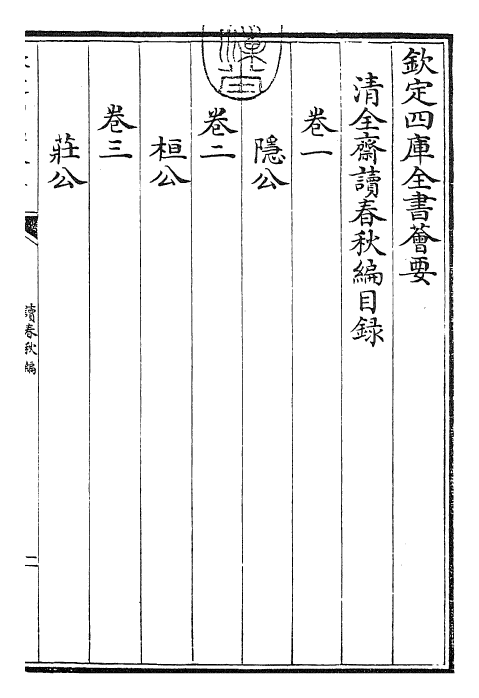 欽定四庫全書薈要
清全齋讀春秋編目録
卷一
隱公
卷二
桓公
卷三
莊公
讀春秋編
二